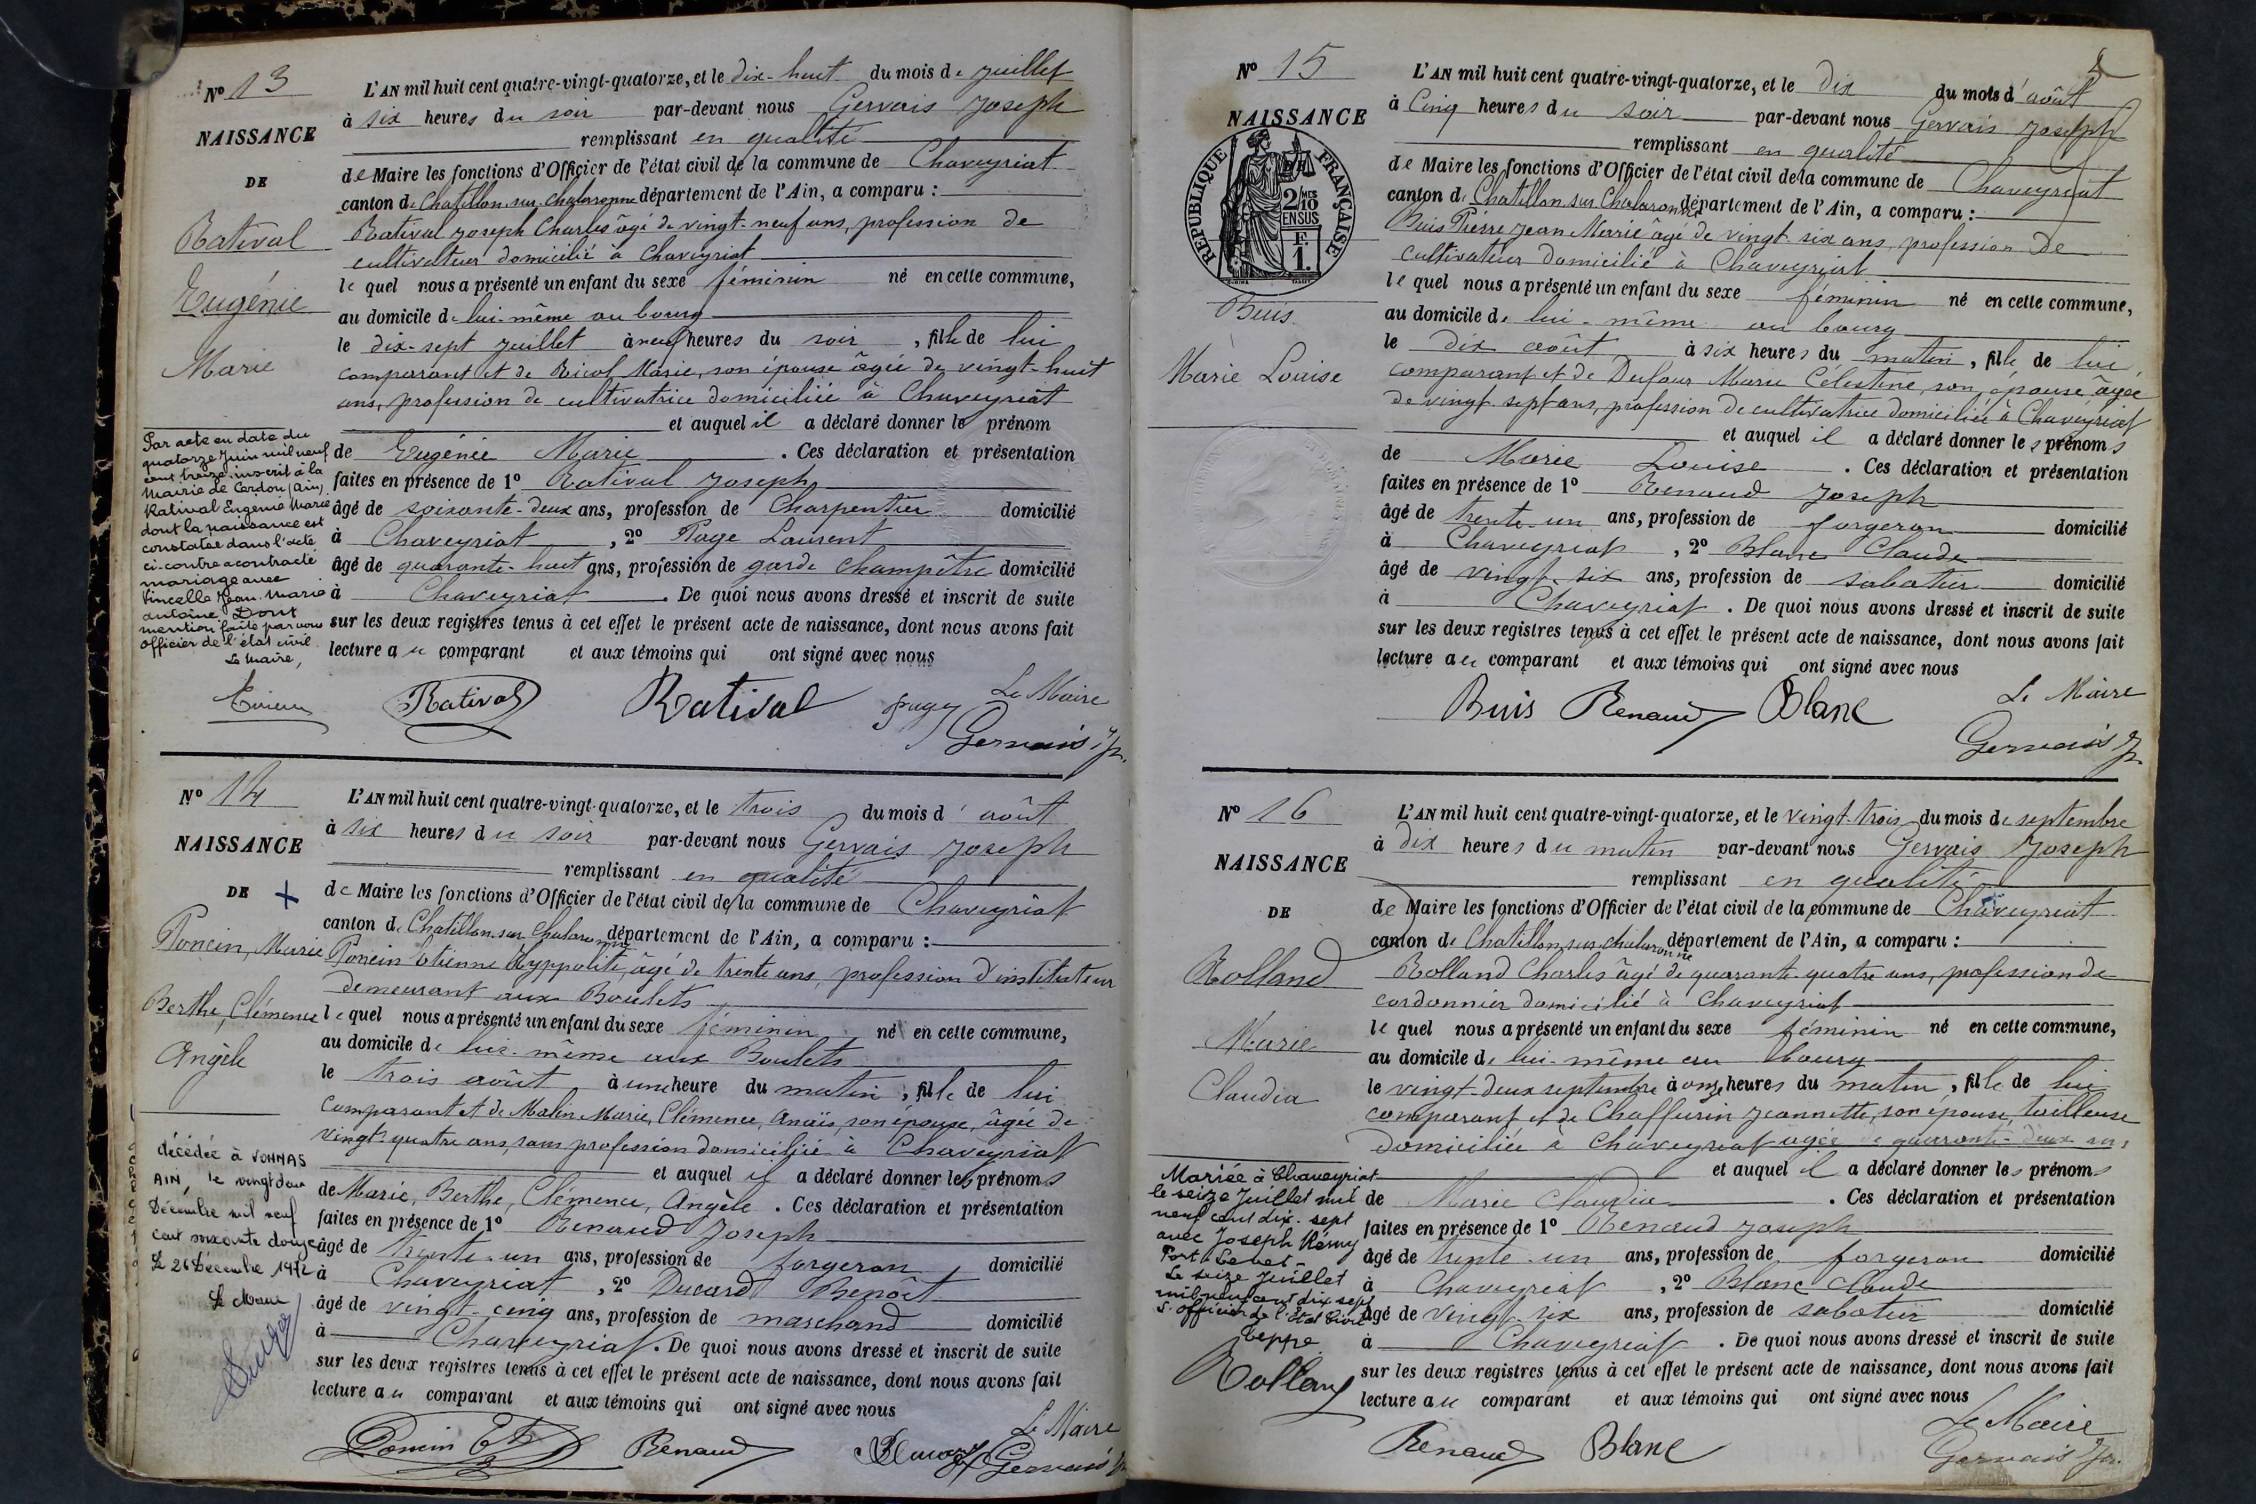 Nº 13
NAISSANCE
DE
Ratival
Eugénie
Marie
L'AN mil huit cent quatre-vingt-quatorze, et le dix-huit du mois de juillet
à six heures du soir par-devant nous Gervais Joseph
remplissant en qualité
de Maire les fonctions d'Officier de l'état civil de la commune de Chaveyriat
canton de Chatillon sur Chalaronne département de l'Ain, a comparu :
Ratival Joseph Charles âgé de vingt-neuf ans, profession de
cultivateur domicilié à Chaveyriat
lequel nous a présenté un enfant du sexe féminin né en cette commune,
au domicile de lui-même au bourg
le dix-sept juillet à neuf heures du soir, fille de lui
comparant et de Ricol Marie, son épouse âgée de vingt-huit
ans, profession de cultivatrice domiciliée à Chaveyriat
et auquel il a déclaré donner le prénom
de Eugénie Marie. Ces déclaration et présentation
faites en présence de 1º Ratival Joseph
âgé de soixante-deux ans, profession de Charpentier domicilié
à Chaveyriat, 2º Page Laurent
âgé de quarante-huit ans, profession de garde champêtre domicilié
à Chaveyriat. De quoi nous avons dressé et inscrit de suite
sur les deux registres tenus à cet effet le présent acte de naissance, dont nous avons fait
lecture au comparant et aux témoins qui ont signé avec nous
Par acte en date du
quatorze Juin mil neuf
cent treize inscrit à la
Mairie de Cerdon (Ain)
Ratival Eugénie Marie
dont la naissance est
constatée dans l'acte
ci-contre a contracté
mariage avec
Vincelle Jean Marie
Antoine. Dont
mention faite par nous
officier de l'état civil
Le Maire,
Ratival Ratival Page Le Maire
Gervais Jh
Nº 14
NAISSANCE
DE +
Poncin, Marie
Berthe, Clémence
Angèle
L'AN mil huit cent quatre-vingt-quatorze, et le trois du mois d'août
à six heures du soir par-devant nous Gervais Joseph
remplissant en qualité
de Maire les fonctions d'Officier de l'état civil de la commune de Chaveyriat
canton de Chatillon sur Chalaronne département de l'Ain, a comparu :
Poncin Etienne Hyppolite, âgé de trente ans, profession d'instituteur
demeurant aux Boulets
lequel nous a présenté un enfant du sexe féminin né en cette commune,
au domicile de lui-même aux Boulets
le trois août à une heure du matin, fille de lui
comparant et de Malin Marie, Clémence, Anaïs, son épouse, âgée de
vingt-quatre ans, sans profession domiciliée à Chaveyriat
et auquel il a déclaré donner les prénoms
de Marie, Berthe, Clémence, Angèle. Ces déclaration et présentation
faites en présence de 1º Renaud Joseph
âgé de trente-un ans, profession de forgeron domicilié
à Chaveyriat, 2º Ducard Benoît
âgé de vingt-cinq ans, profession de marchand domicilié
à Chaveyriat. De quoi nous avons dressé et inscrit de suite
sur les deux registres tenus à cet effet le présent acte de naissance, dont nous avons fait
lecture au comparant et aux témoins qui ont signé avec nous
décédée à VONNAS
AIN, le vingt deux
Décembre mil neuf
cent soixante douze
Le 26 Décembre 1972
Le Maire
Poncin Et Renaud Le Maire
Gervais Jh
Nº 15
NAISSANCE
RÉPUBLIQUE FRANÇAISE
2/10 MES
EN SUS
F.
1.
Buis
Marie Louise
L'AN mil huit cent quatre-vingt-quatorze, et le dix du mois d'août
à Cinq heures du soir par-devant nous Gervais Joseph
remplissant en qualité
de Maire les fonctions d'Officier de l'état civil de la commune de Chaveyriat
canton de Chatillon sur Chalaronne département de l'Ain, a comparu :
Buis Pierre Jean Marie âgé de vingt-six ans, profession de
cultivateur domicilié à Chaveyriat
lequel nous a présenté un enfant du sexe féminin né en cette commune,
au domicile de lui-même au bourg
le dix août à six heures du matin, fille de lui
comparant et de Dufour Marie Célestine, son épouse âgée
de vingt-sept ans, profession de cultivatrice domiciliée à Chaveyriat
et auquel il a déclaré donner les prénoms
de Marie Louise. Ces déclaration et présentation
faites en présence de 1º Renaud Joseph
âgé de trente-un ans, profession de forgeron domicilié
à Chaveyriat, 2º Blanc Claude
âgé de vingt-six ans, profession de sabotier domicilié
à Chaveyriat. De quoi nous avons dressé et inscrit de suite
sur les deux registres tenus à cet effet le présent acte de naissance, dont nous avons fait
lecture au comparant et aux témoins qui ont signé avec nous
Buis Renaud Blanc Le Maire
Gervais Jh
Nº 16
NAISSANCE
DE
Rolland
Marie
Claudia
L'AN mil huit cent quatre-vingt-quatorze, et le vingt-trois du mois de septembre
à dix heures du matin par-devant nous Gervais Joseph
remplissant en qualité
de Maire les fonctions d'Officier de l'état civil de la commune de Chaveyriat
canton de Chatillon sur Chalaronne département de l'Ain, a comparu :
Rolland Charles âgé de quarante-quatre ans, profession de
cordonnier domicilié à Chaveyriat
lequel nous a présenté un enfant du sexe féminin né en cette commune,
au domicile de lui-même au bourg
le vingt-deux septembre à onze heures du matin, fille de lui
comparant et de Chaffurin Jeannette, son épouse, tailleuse
domiciliée à Chaveyriat âgée de quarante-deux ans
et auquel il a déclaré donner les prénoms
de Marie Claudia. Ces déclaration et présentation
faites en présence de 1º Renaud Joseph
âgé de trente-un ans, profession de forgeron domicilié
à Chaveyriat, 2º Blanc Claude
âgé de vingt-six ans, profession de sabotier domicilié
à Chaveyriat. De quoi nous avons dressé et inscrit de suite
sur les deux registres tenus à cet effet le présent acte de naissance, dont nous avons fait
lecture au comparant et aux témoins qui ont signé avec nous
Mariée à Chaveyriat
le seize Juillet mil
neuf cent dix-sept
avec Joseph Rémy
Le seize Juillet
mil neuf cent dix sept
L'officier de l'Etat Civil
Teppe
Rolland
Renaud Blanc Le Maire
Gervais Jh.